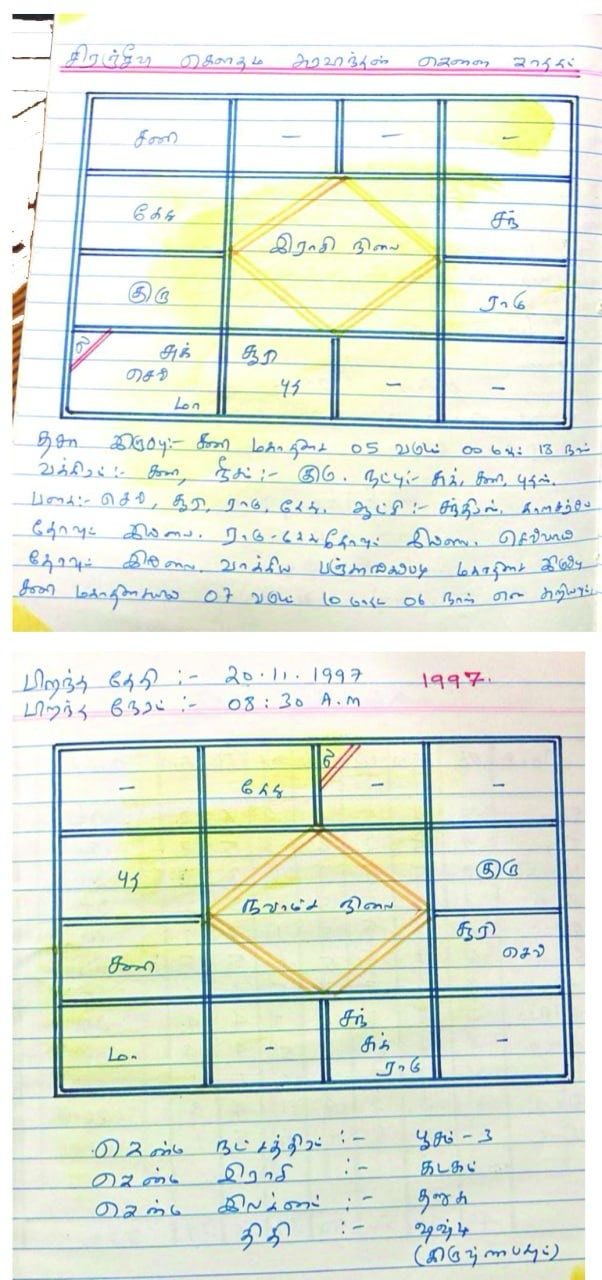 சிரஞ்சீவி கௌதம் அரவிந்தன் ஜாதகம்
சனி - - -
கேது சந்
இராசி நிலை
குரு ராகு
ல சுக் சூரி
செவ் புத - -
மா
தசா இருப்பு:- சனி மகாதிசை 05 வருடம் 00 மாதம் 13 நாள்
வக்கிரம்:- சனி, நீசம்:- குரு. நட்பு:- சுக், சனி, புதன்.
பகை:- செவ், சூரி, ராகு, கேது. ஆட்சி:- சந்திரன். காலசர்ப்ப
தோஷம் இல்லை. ராகு-கேது தோஷம் இல்லை. செவ்வாய்
தோஷம் இல்லை. வாக்கிய பஞ்சாங்கப்படி மகாதிசை இருப்பு
சனி மகாதிசையில் 07 வருடம் 10 மாதம் 06 நாள் என அறியவும்
பிறந்த தேதி :- 20.11.1997 1997.
பிறந்த நேரம் :- 08:30 A.M
- கேது ல - -
புத குரு
நவாம்ச நிலை
சனி சூரி
செவ்
மா - சந் -
சுக்
ராகு
ஜென்ம நட்சத்திரம் :- பூசம் - 3
ஜென்ம இராசி :- கடகம்
ஜென்ம இலக்னம் :- தனுசு
திதி :- ஷஷ்டி
(கிருஷ்ணபட்சம்)